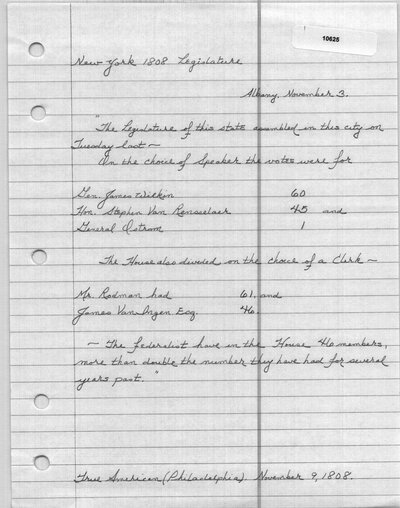 10625
New York 1808 Legislature
Albany, November 3.
"The Legislature of this state assembled in this city on
Tuesday last ~
On the choice of Speaker the votes were for
Gen. James Wilkin 60
Hon. Stephen Van Rensselaer 45 and
General Ostrom 1
The House also divided on the choice of a Clerk ~
Mr. Rodman had 61, and
James Van Ingen Esq. 46.
~ The federalist have in the House 46 members,
more than double the number they have had for several
years past."
True American (Philadelphia). November 9, 1808.